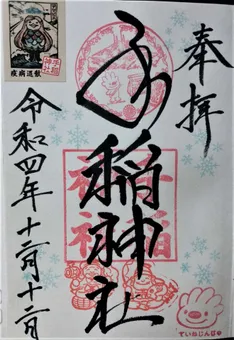 奉拝
手稲神社
令和四年十二月十二日
疫病退散
ていねじんじゃ